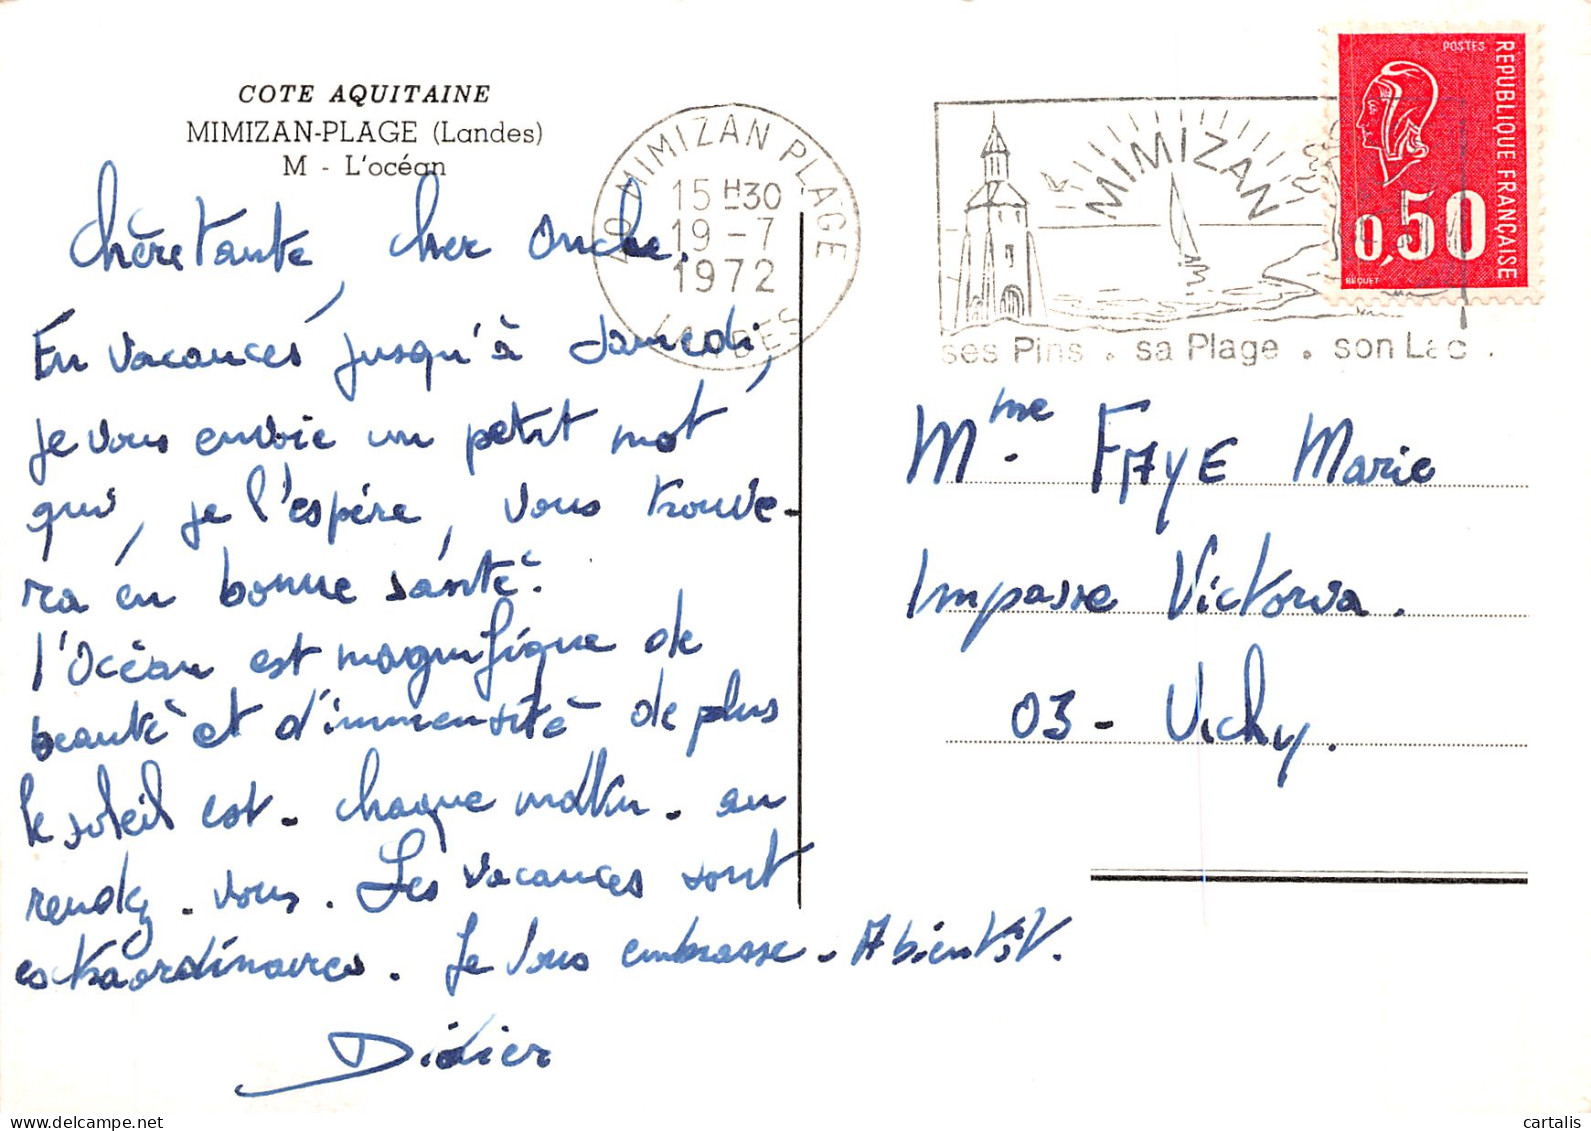 COTE AQUITAINE
MIMIZAN-PLAGE (Landes)
M - L'océan
40 MIMIZAN PLAGE
15 H30
19 - 7
1972
LANDES
MIMIZAN
ses Pins . sa Plage . son Lac .
POSTES
REPUBLIQUE FRANÇAISE
0,50
BEQUET
Chère Tante, cher Oncle.
En vacances jusqu'à Samedi,
je vous envoie un petit mot
qui, je l'espère, vous trouve-
ra en bonne santé.
l'Océan est magnifique de
beauté et d'immensité de plus
le soleil est - chaque matin - au
rendez - vous. Les vacances sont
extraordinaires. Je vous embrasse - A bientôt.
Didier
Mme. FAYE Marie
Impasse Victoria.
03 - Vichy.
© cartalis
delcampe.net